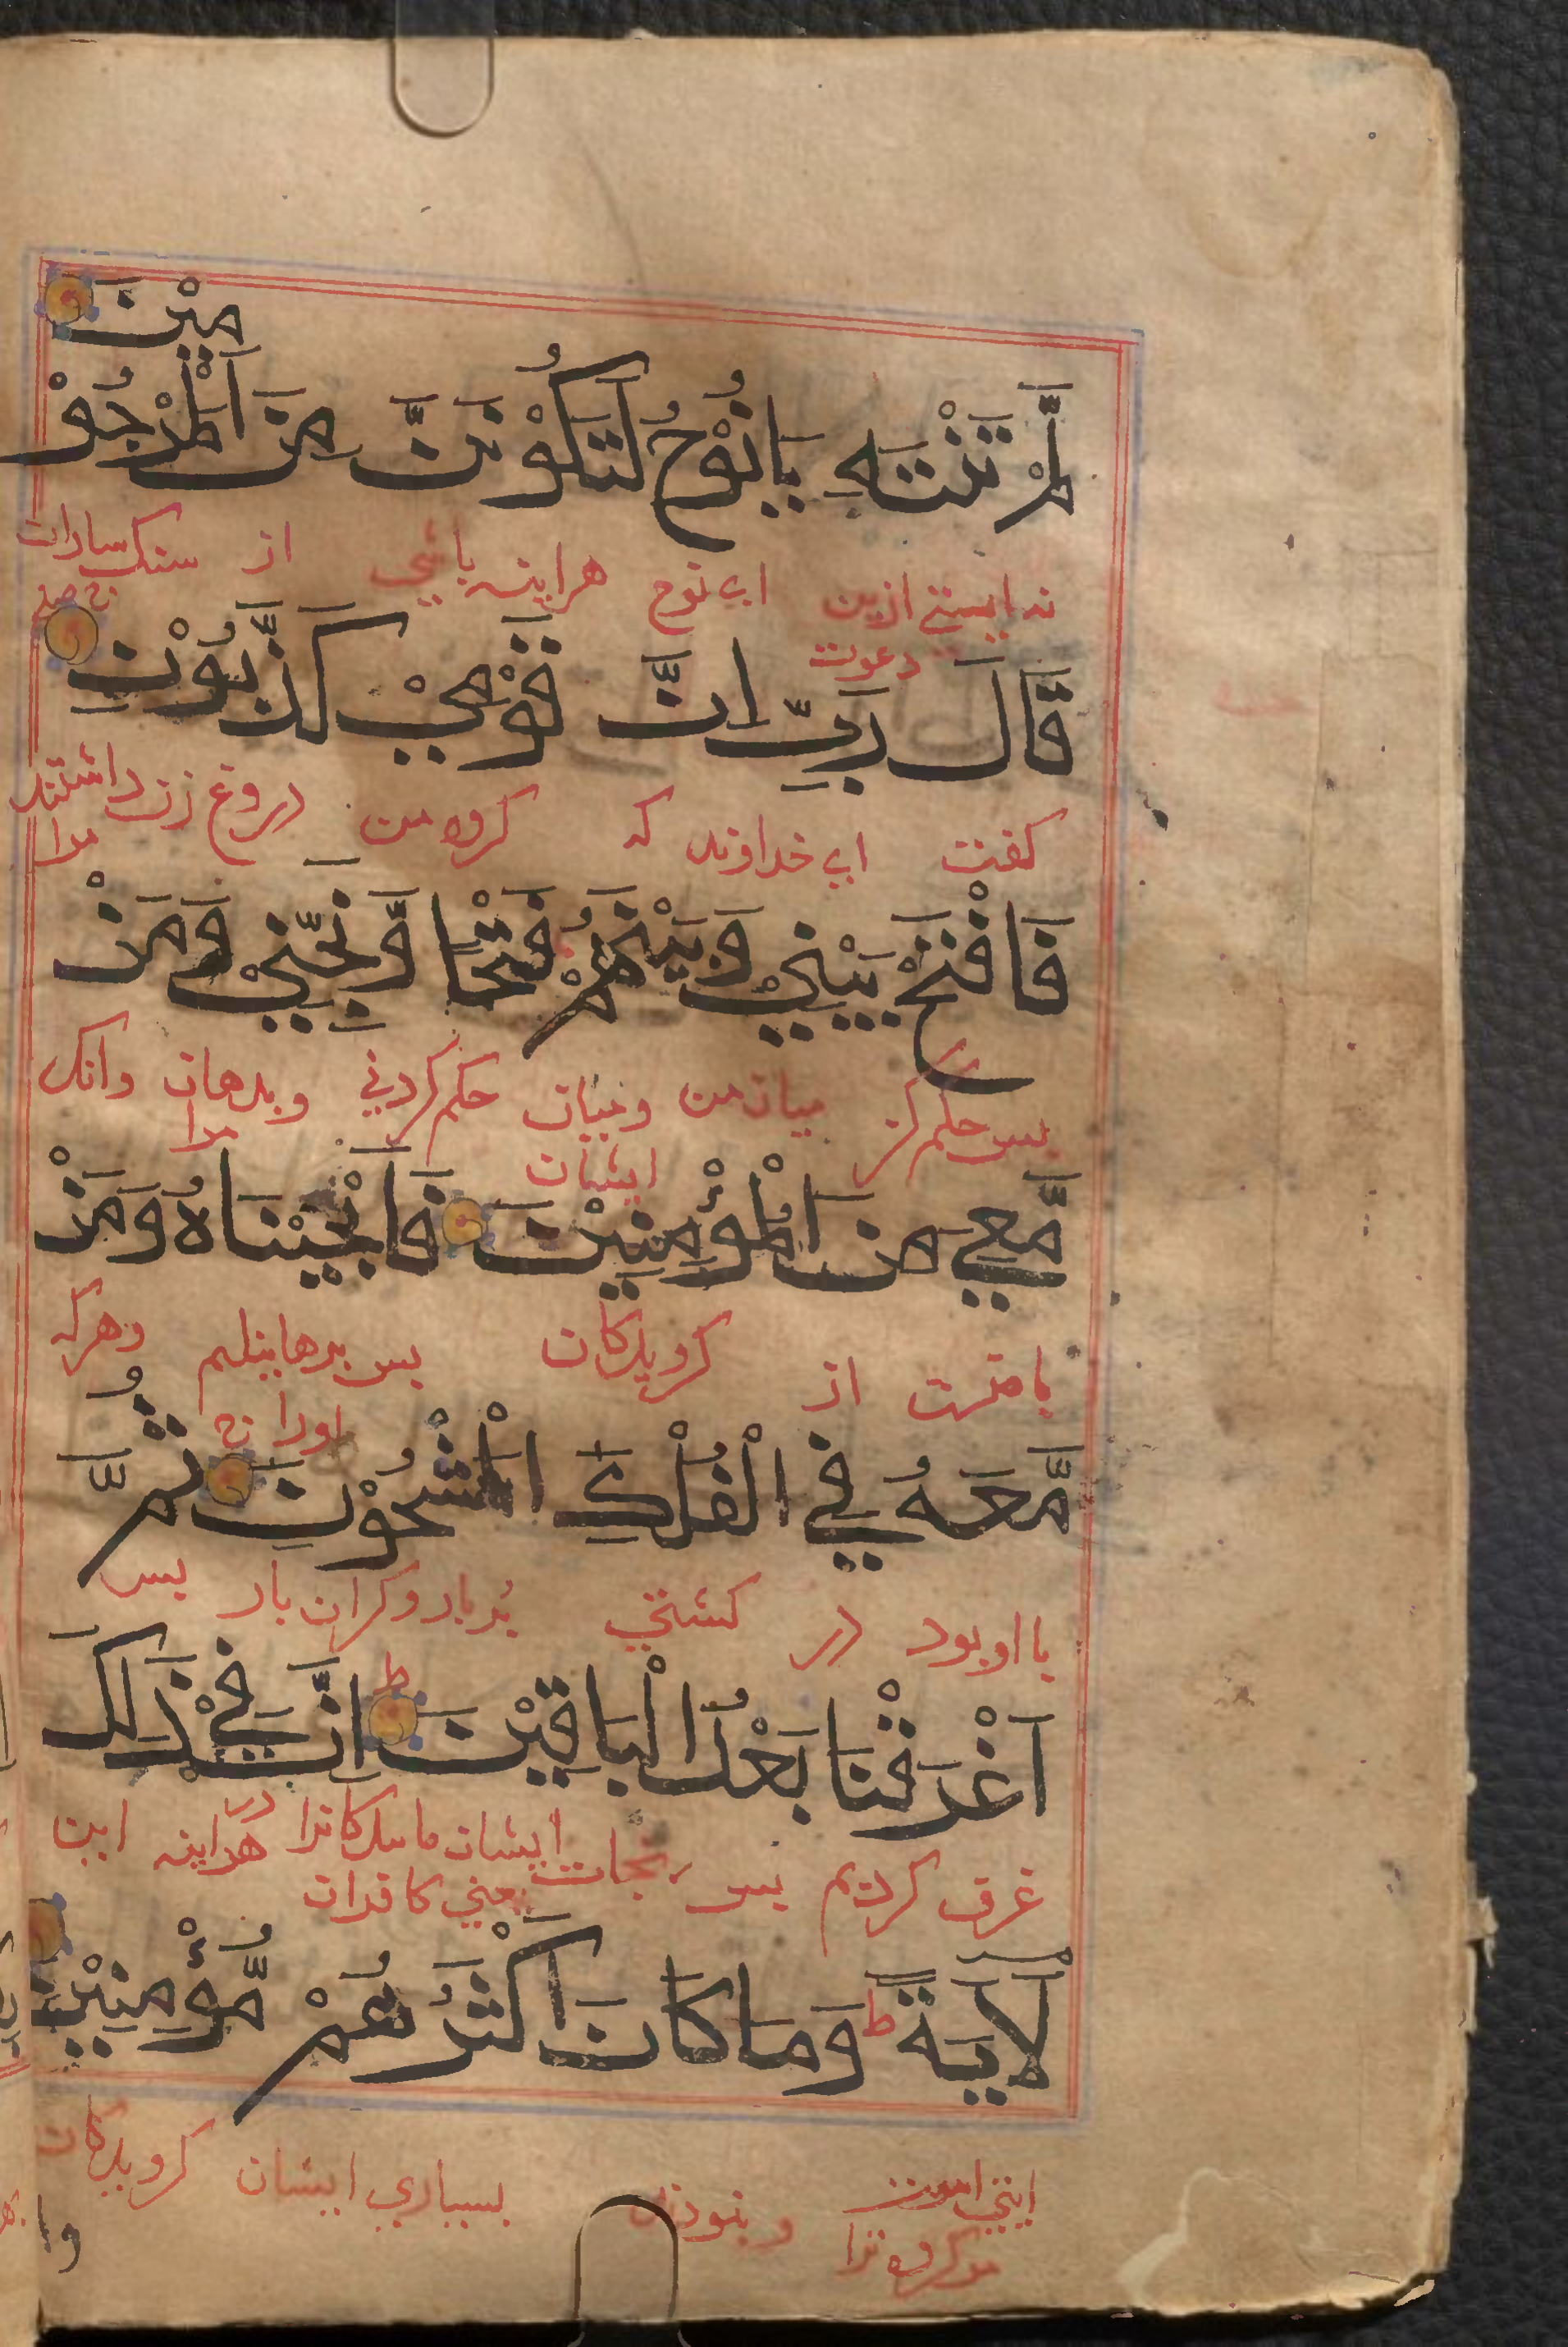 لَّمْ تَنْتَهِ يَانُوْحُ لَتَكُوْنَنَّ مِنَ الْمَرْجُوْمِيْنَ
نه ایستی ازین دعوت ای نوح هراینه باشی از سنکساران
قَالَ رَبِّ اِنَّ قَوْمِيْ كَذَّبُوْنِ
کفت ای خداوند که کروه من دروغ زن داشتند مرا
فَافْتَحْ بَيْنِيْ وَبَيْنَهُمْ فَتْحًا وَّنَجِّنِيْ وَمَنْ
بس حکم کن میان من ومیان ایشان حکم کردنی وبرهان مرا وانک
مَّعِيَ مِنَ الْمُؤْمِنِيْنَ فَاَنْجَيْنَاهُ وَمَنْ
با منست از کرویدکان بس برهانیدیم اورا وهرکه
مَّعَهُ فِي الْفُلْكِ الْمَشْحُوْنِ ثُمَّ
با او بود در کشتی پربار وکران بار بس
اَغْرَقْنَا بَعْدُ الْبَاقِيْنَ اِنَّ فِيْ ذَلِكَ
غرق کردیم بس نجات ایشان ماندکانرا یعنی کافران هراینه در این
لَاٰيَةً وَمَا كَانَ اَكْثَرُهُمْ مُّؤْمِنِيْنَ
ایتی است مر کروه ترا ونبودند بسیاری ایشان کرویدکان
وا